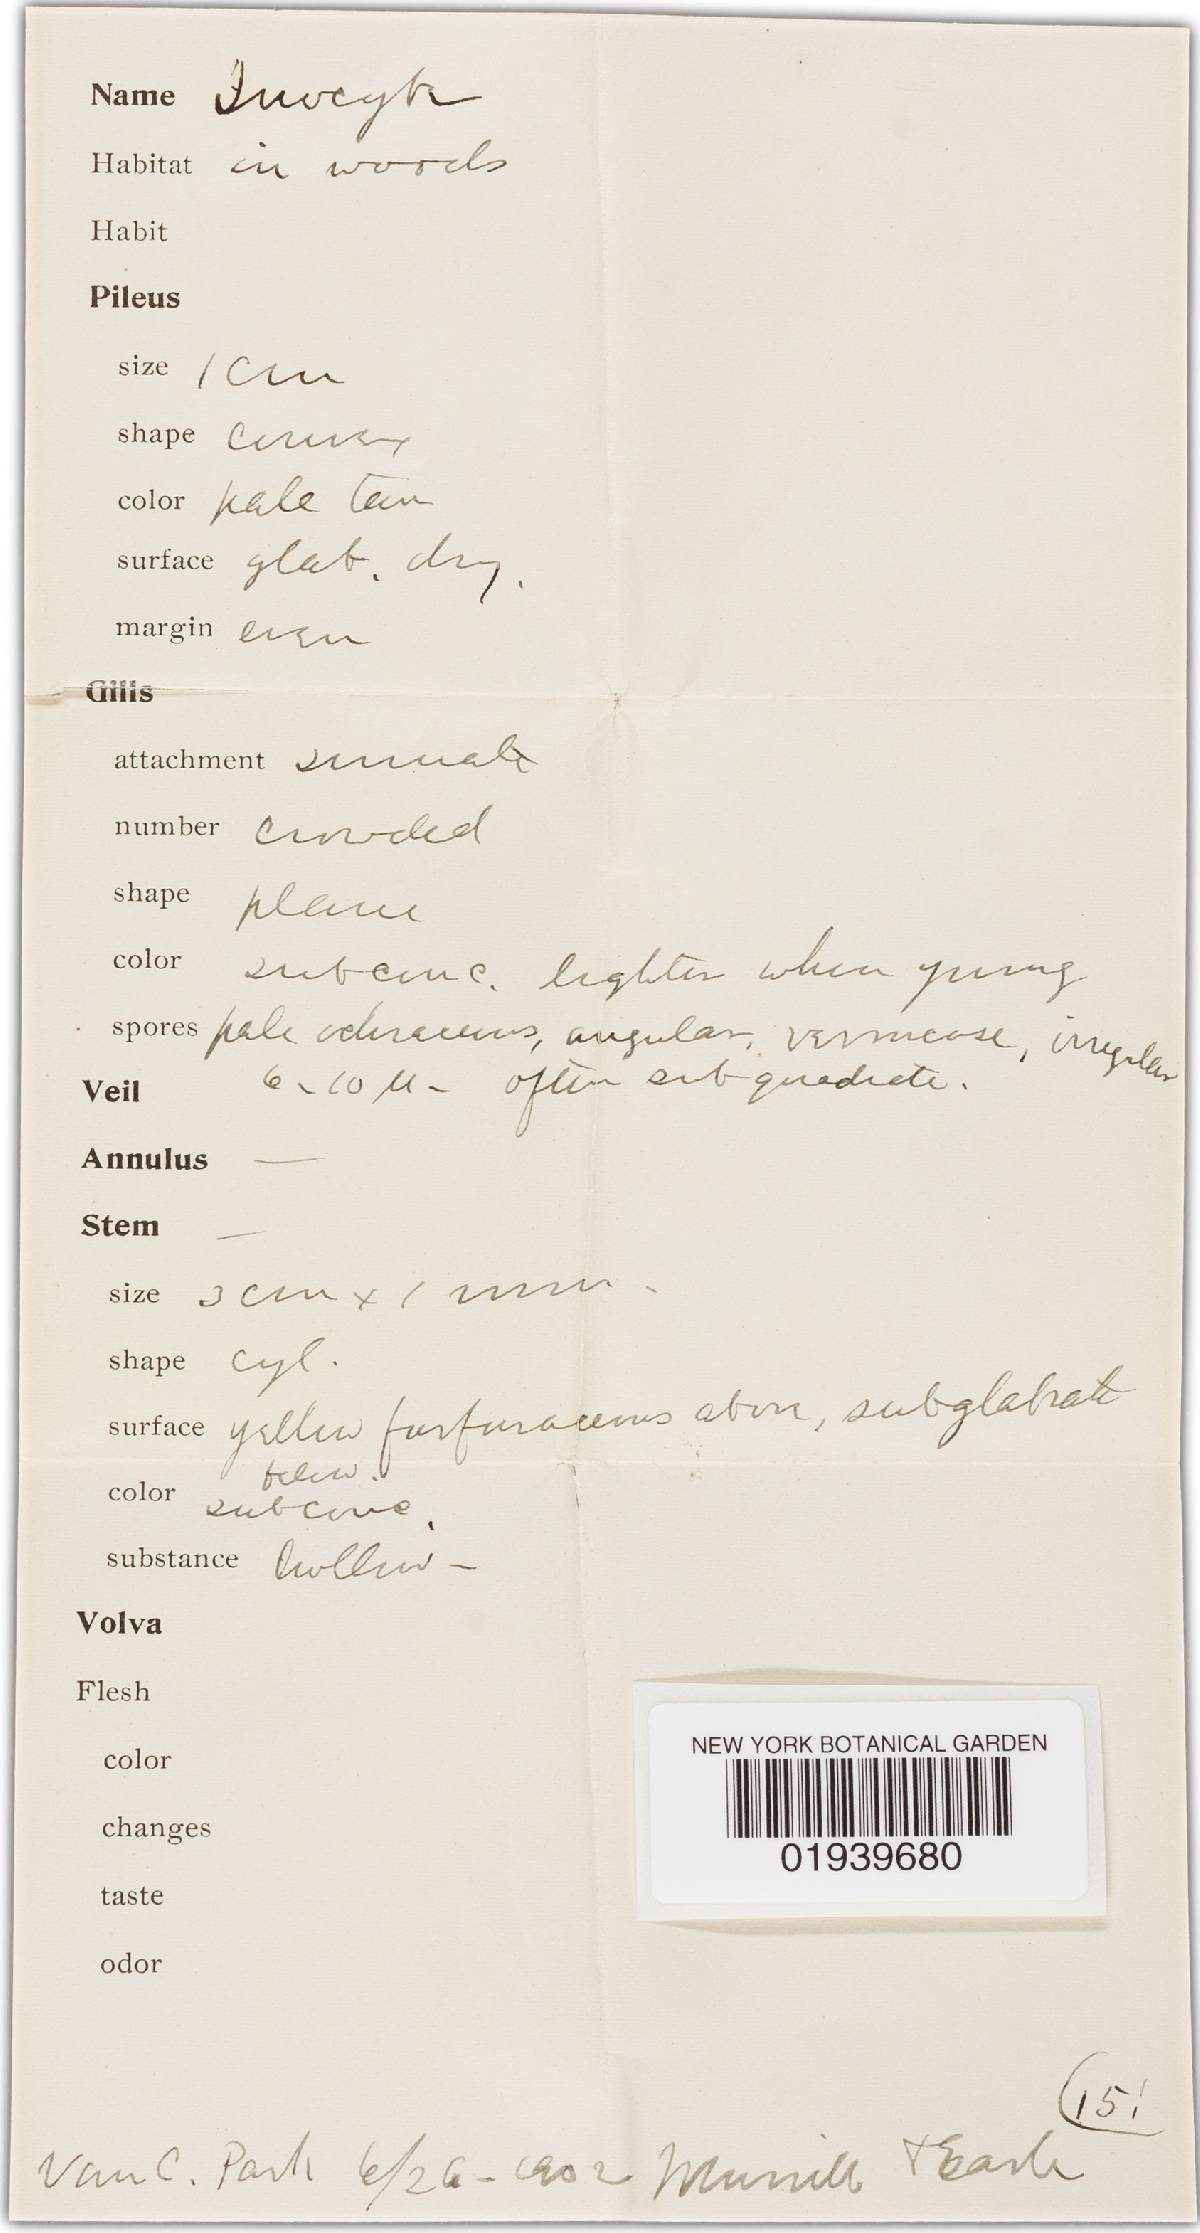 Name Inocybe
Habitat in woods
Habit
Pileus
size 1 cm
shape convex
color pale tan
surface glab. dry.
margin even
Gills
attachment sinuate
number crowded
shape plane
color subconc. lighter when young
spores pale ochraceous, angular, verrucose, irregular
6-10 µ - often subquadrate.
Veil
Annulus —
Stem —
size 3 cm x 1 mm.
shape cyl.
surface yellow furfuraceous above, subglabrate
below.
color subconc.
substance hollow -
Volva
Flesh
color
changes
taste
odor
NEW YORK BOTANICAL GARDEN
01939680
(151
Van C. Park 6/26-1902 Murrill & Earle